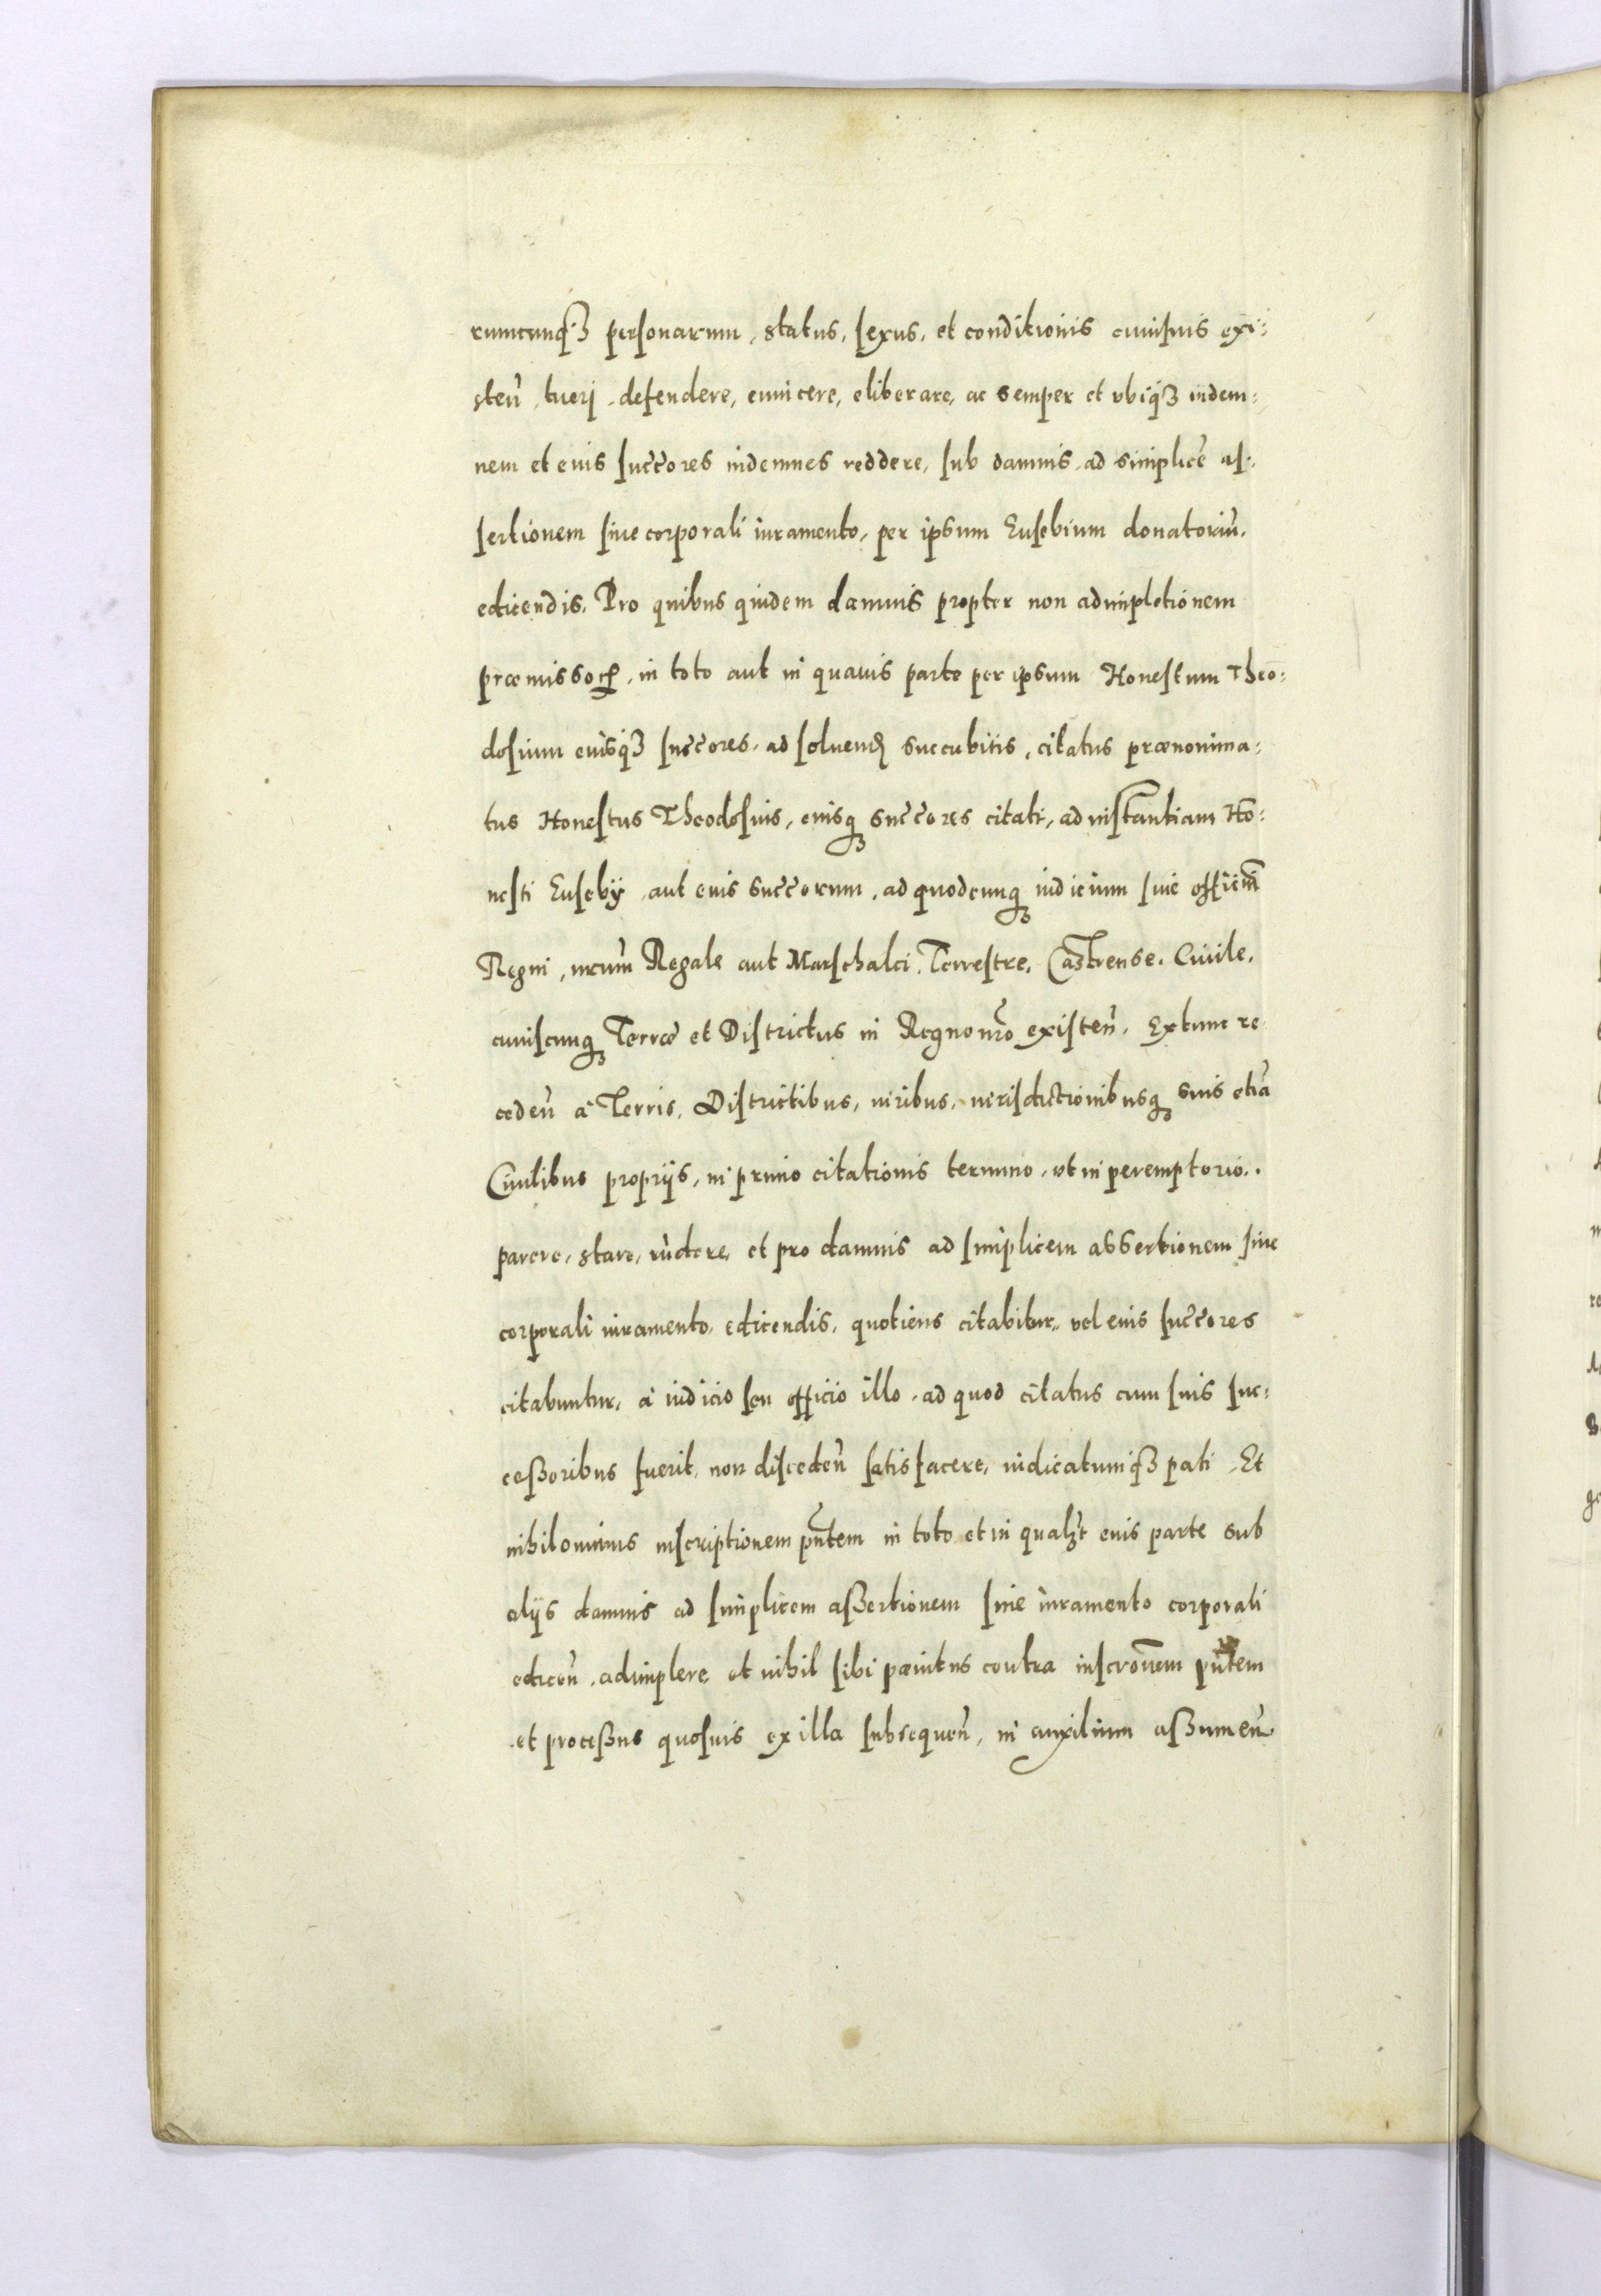 rumcunq̃ʒ personarum, status, sexus, et conditionis cuiusuis exi:
steñ, tueri, defendere, euincere, eliberare, ac semper et vbiq̃ʒ indem:
nem et eius succ̃ores indemnes reddere, sub damnis ad simplicẽ as:
sertionem sine corporali iuramento, per ipsum Eusebium donatoriũ,
edicendis. Pro quibus quidem damnis propter non adimpletionem
præmissoꝝ, in toto aut in quauis parte per ipsum Honestum Theo:
dosium eiusq̃ʒ succ̃ores, ad soluenđ succubitis, citatus prænonima:
tus Honestus Theodosius, eiusqʒ succ̃ores citati, ad instantiam Ho:
nesti Eusebÿ, aut eius succ̃orum, ad quodcunqʒ iudicium siue officiũ
Regni, nr̃um Regale aut Marschalci, Terrestre, Castrense, Ciuile,
cuiuscunqʒ Terræ et Districtus in Regno nr̃o existeñ. Extunc re
cedeñ à Terris, Districtibus, iuribus, iurisdictionibusqʒ suis etiã
Ciuilibus proprijs, in primo citationis termino, vt in peremptorio,
parere, stare, rñdere, et pro damnis ad simplicem assertionem sine
corporali iuramento, edicendis, quotiens citabitur, vel eius succ̃ores
citabuntur, à iudicio seu officio illo, ad quod citatus cum suis suc:
ceßoribus fuerit, non discedeñ satisfacere, iudicatumq̃ʒ pati. Et
nihilominus inscriptionem pñtem in toto et in qualʒt eius parte sub
alijs damnis ad simplicem aßertionem sine iuramento corporali
ediceñ, adimplere, et nihil sibi pœnitus contra inscrõnem pñtem
et proceßus quosuis ex illa subsequeñ, in auxilium aßumeñ